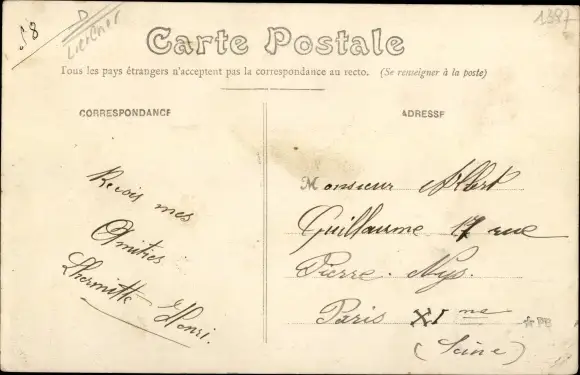 58
D
1397
Carte Postale
Tous les pays étrangers n'acceptent pas la correspondance au recto. (Se renseigner à la poste)
CORRESPONDANCE
ADRESSE
Recois mes
Amitiés
Lhermitte Henri.
Monsieur Albert
Guillaume 17 rue
Pierre. Nys.
Paris XI me
(Seine)